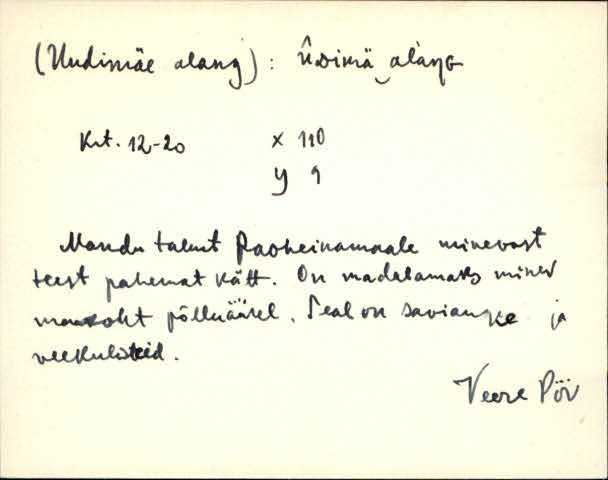 (Uudismäe alang): Ûdimä‿alang
Krt. 12-20 x 110
y 9
Mandu talust Paoheinamaale minevast
teest pahemat kätt. On madalamaks minev
maakoht põlluäärel. Seal on saviauke ja
veekulkteid.
Veere Pöör